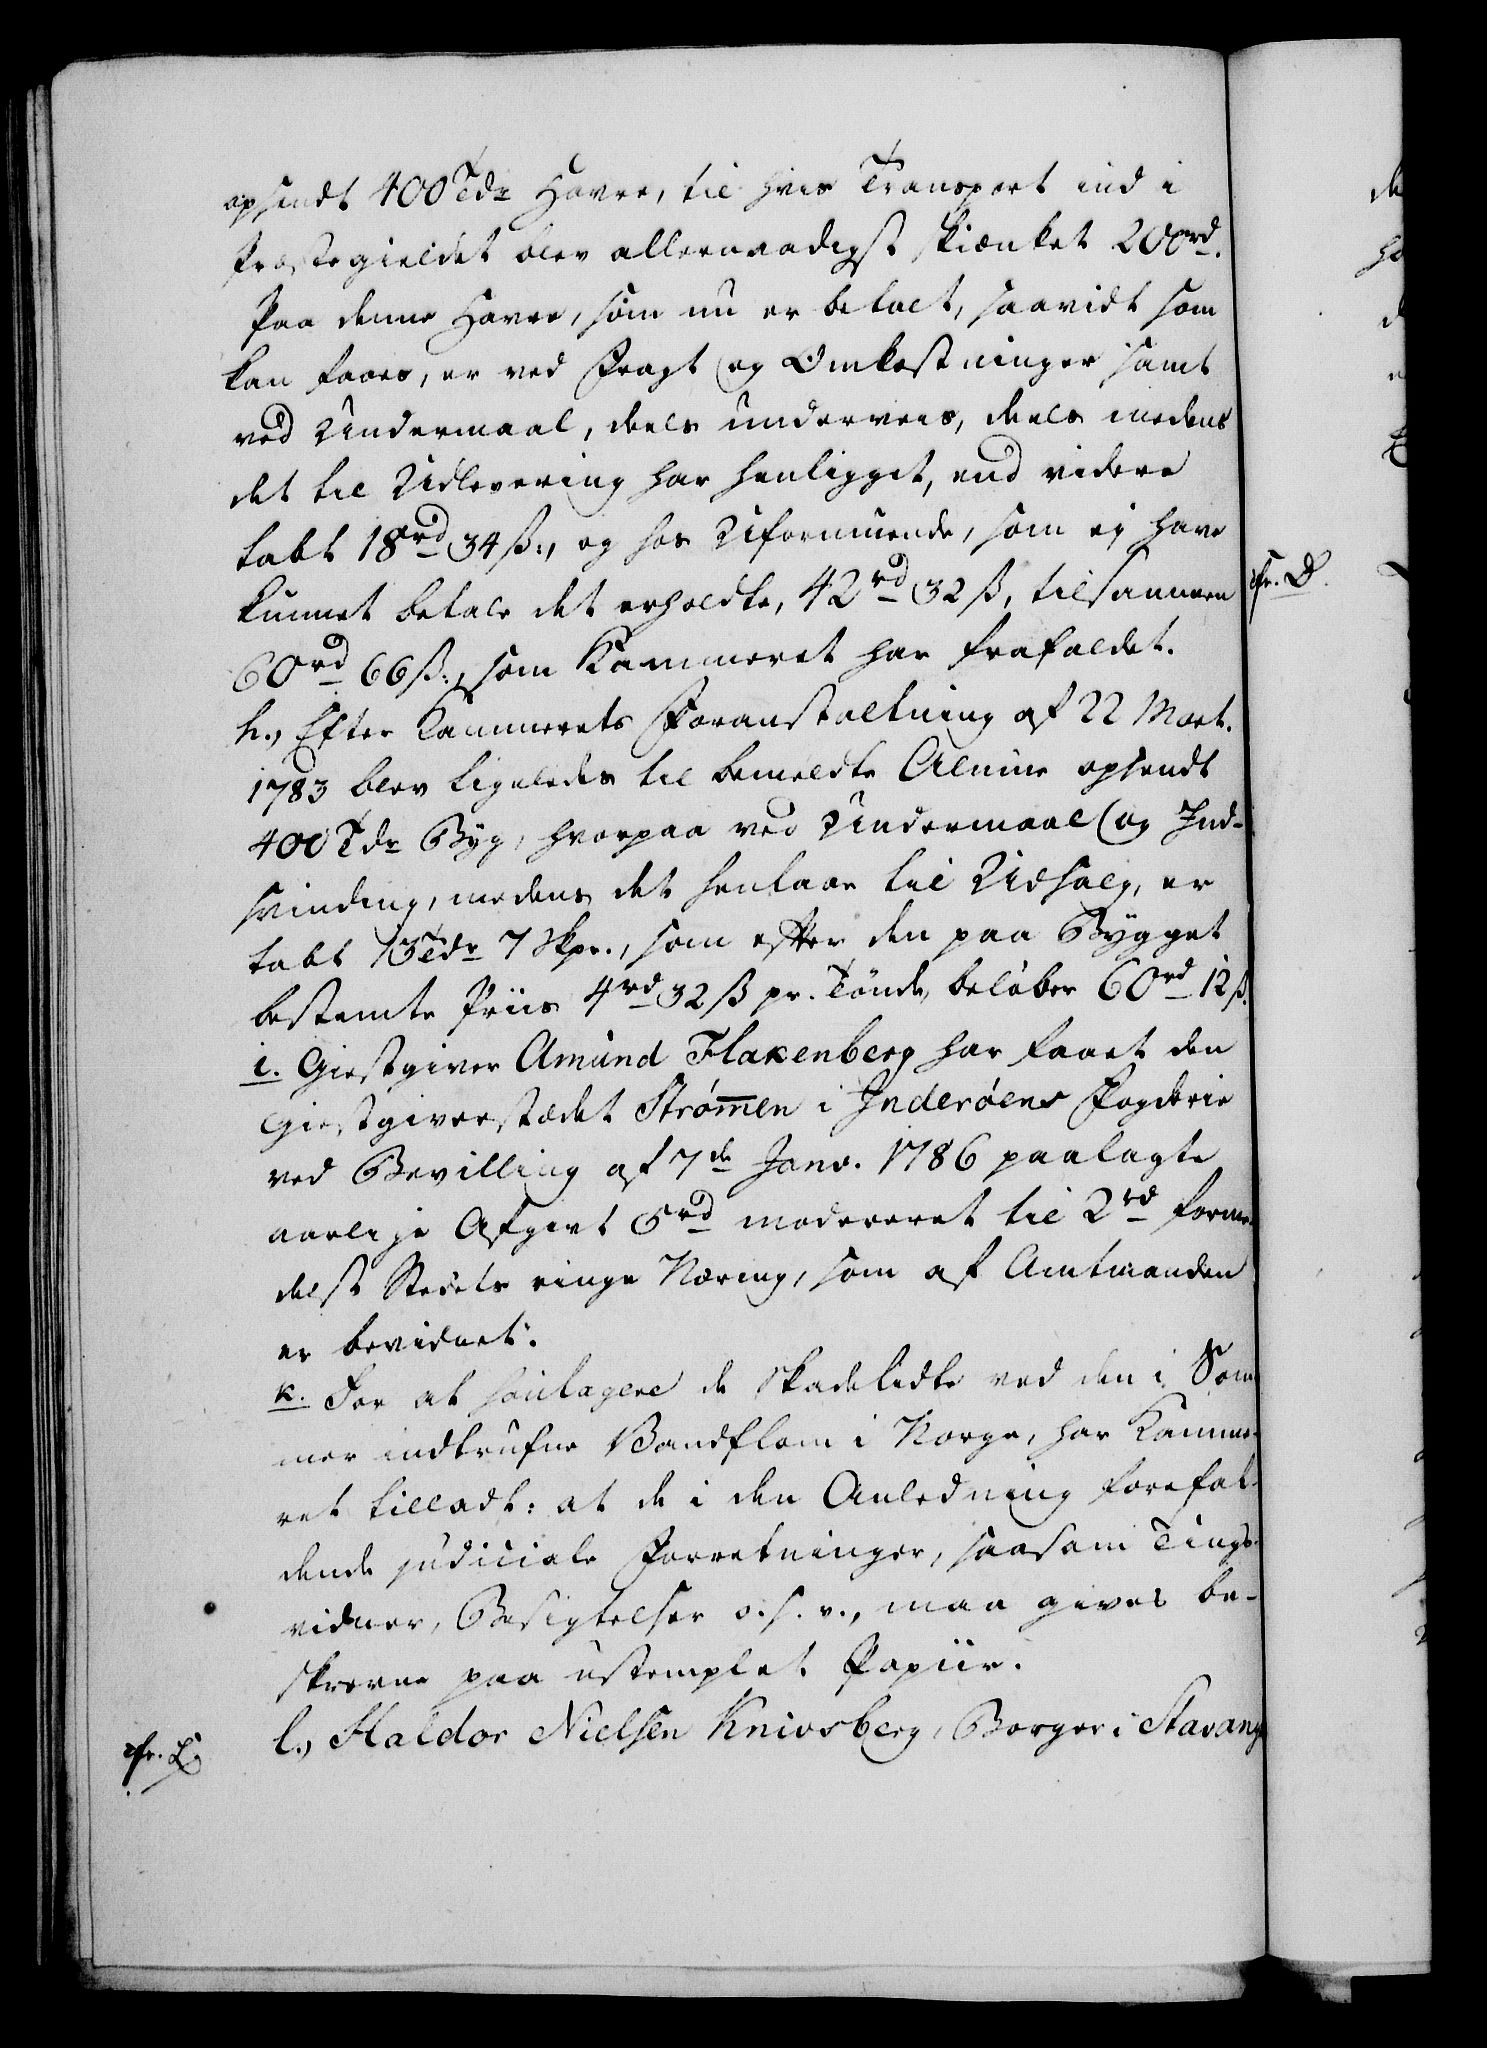 opsendt 400 Tdr Havre, til hvis Transport ind i
Præstegieldet blev allernaadigst skiænket 200rd.
Paa denne Havre, som nu er betalt, saavidt som
kan faaes, er ved Fragt og Omkostninger samt
ved Undermaal, deels underveis, deels medens
det til Udlevering har henligget, end videre
tabt 18rd 34ß:, og hos Uformuende, som ej have
kunnet betale det erholdte, 42rd 32ß, tilsammen
cfr. D.
60rd 66ß:, som Kammeret har frafaldet.
h., Efter Kammerets Foranstaltning af 22 Mart.
1783 blev ligeledes til bemeldte Almue opsendt
400 Tdr Byg, hvorpaa ved Undermaal og Ind-
svinding, medens det henlaae til Udsalg, er
tabt 13 Tdr 7 Skpr., som efter den paa Bygget
bestemte Priis 4rd 32ß pr. Tönde, belöber 60rd 12ß.
i. Giestgiver Amund Flakenberg har faaet den
Giestgiverstædet Strømmen i Inderöens Fogderie
ved Bevilling af 7de Janv. 1786 paalagte
aarlige Afgivt 5rd modereret til 2rd forme-
delst Stedets ringe Næring, som af Amtmanden
er bevidnet.
k. For at soulagere de Skadelidte ved den i Som-
mer indtrufne Vandflom i Norge, har Kamme-
ret tilladt: at de i den Anledning forefal-
dende judiciale Forretninger, saasom Tings-
vidner, Besigtelser o. s. v., maa gives be-
skrevne paa ustemplet Papiir.
l., Haldor Nielsen Knivsberg, Borger i Stavang
cfr.